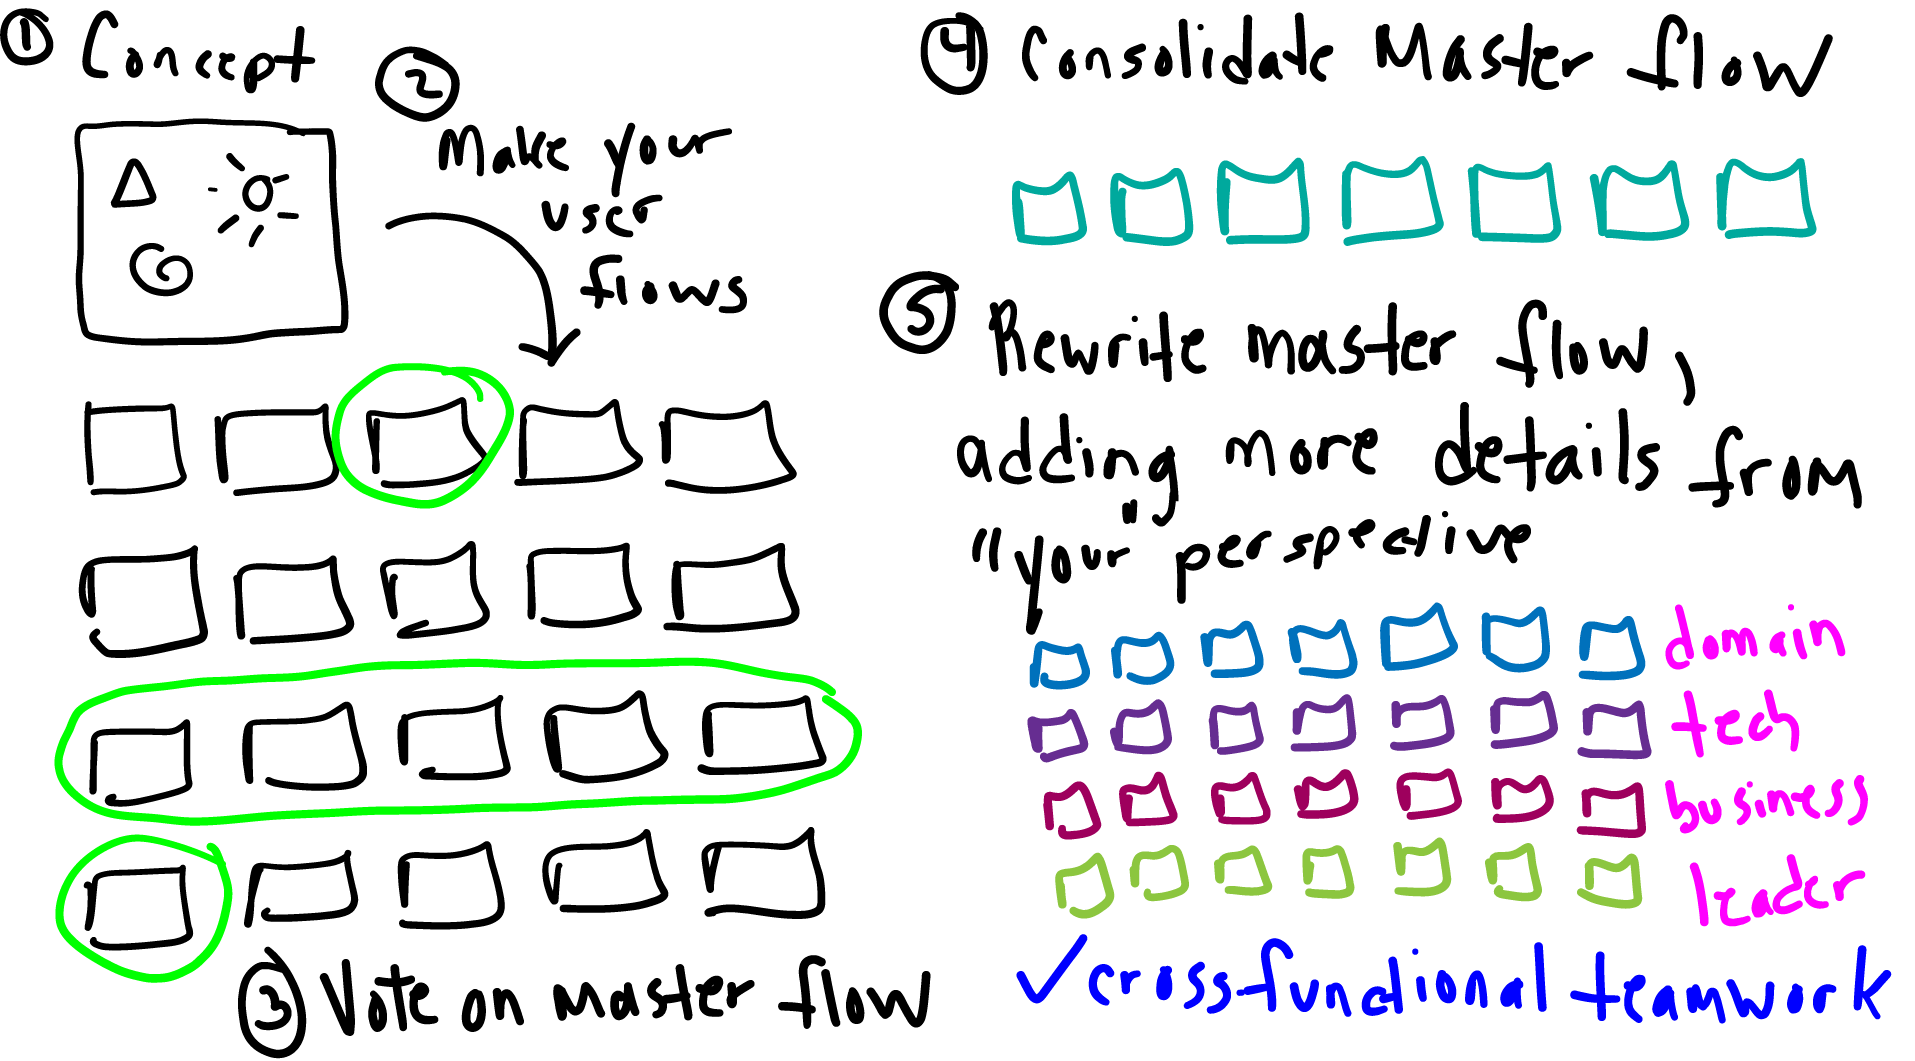 1 Concept
2
Make your
user
flows
3 Vote on master flow
4 Consolidate Master flow
5 Rewrite master flow,
adding more details from
"your" perspective
domain
tech
business
leader
✓ crossfunctional teamwork